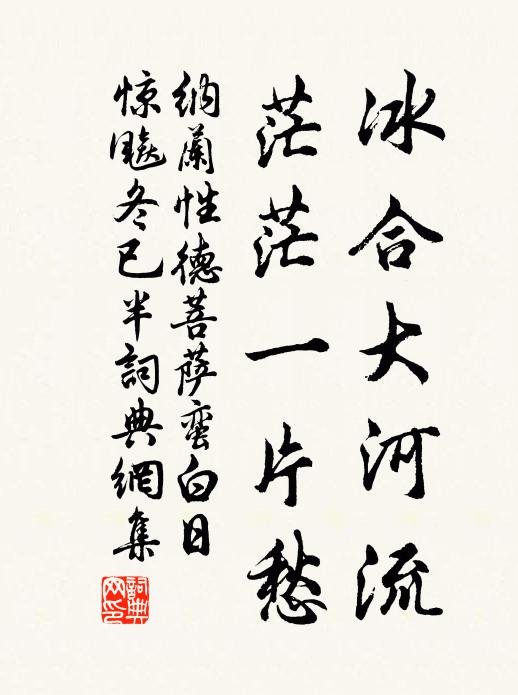 冰合大河流
茫茫一片愁
納蘭性德菩薩蛮白日
惊飈冬已半詞典網集
詞典网印